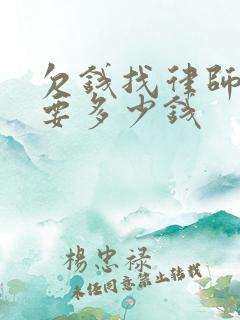 欠錢找律師
要多少錢
楊忠祿
未经同意禁止转载